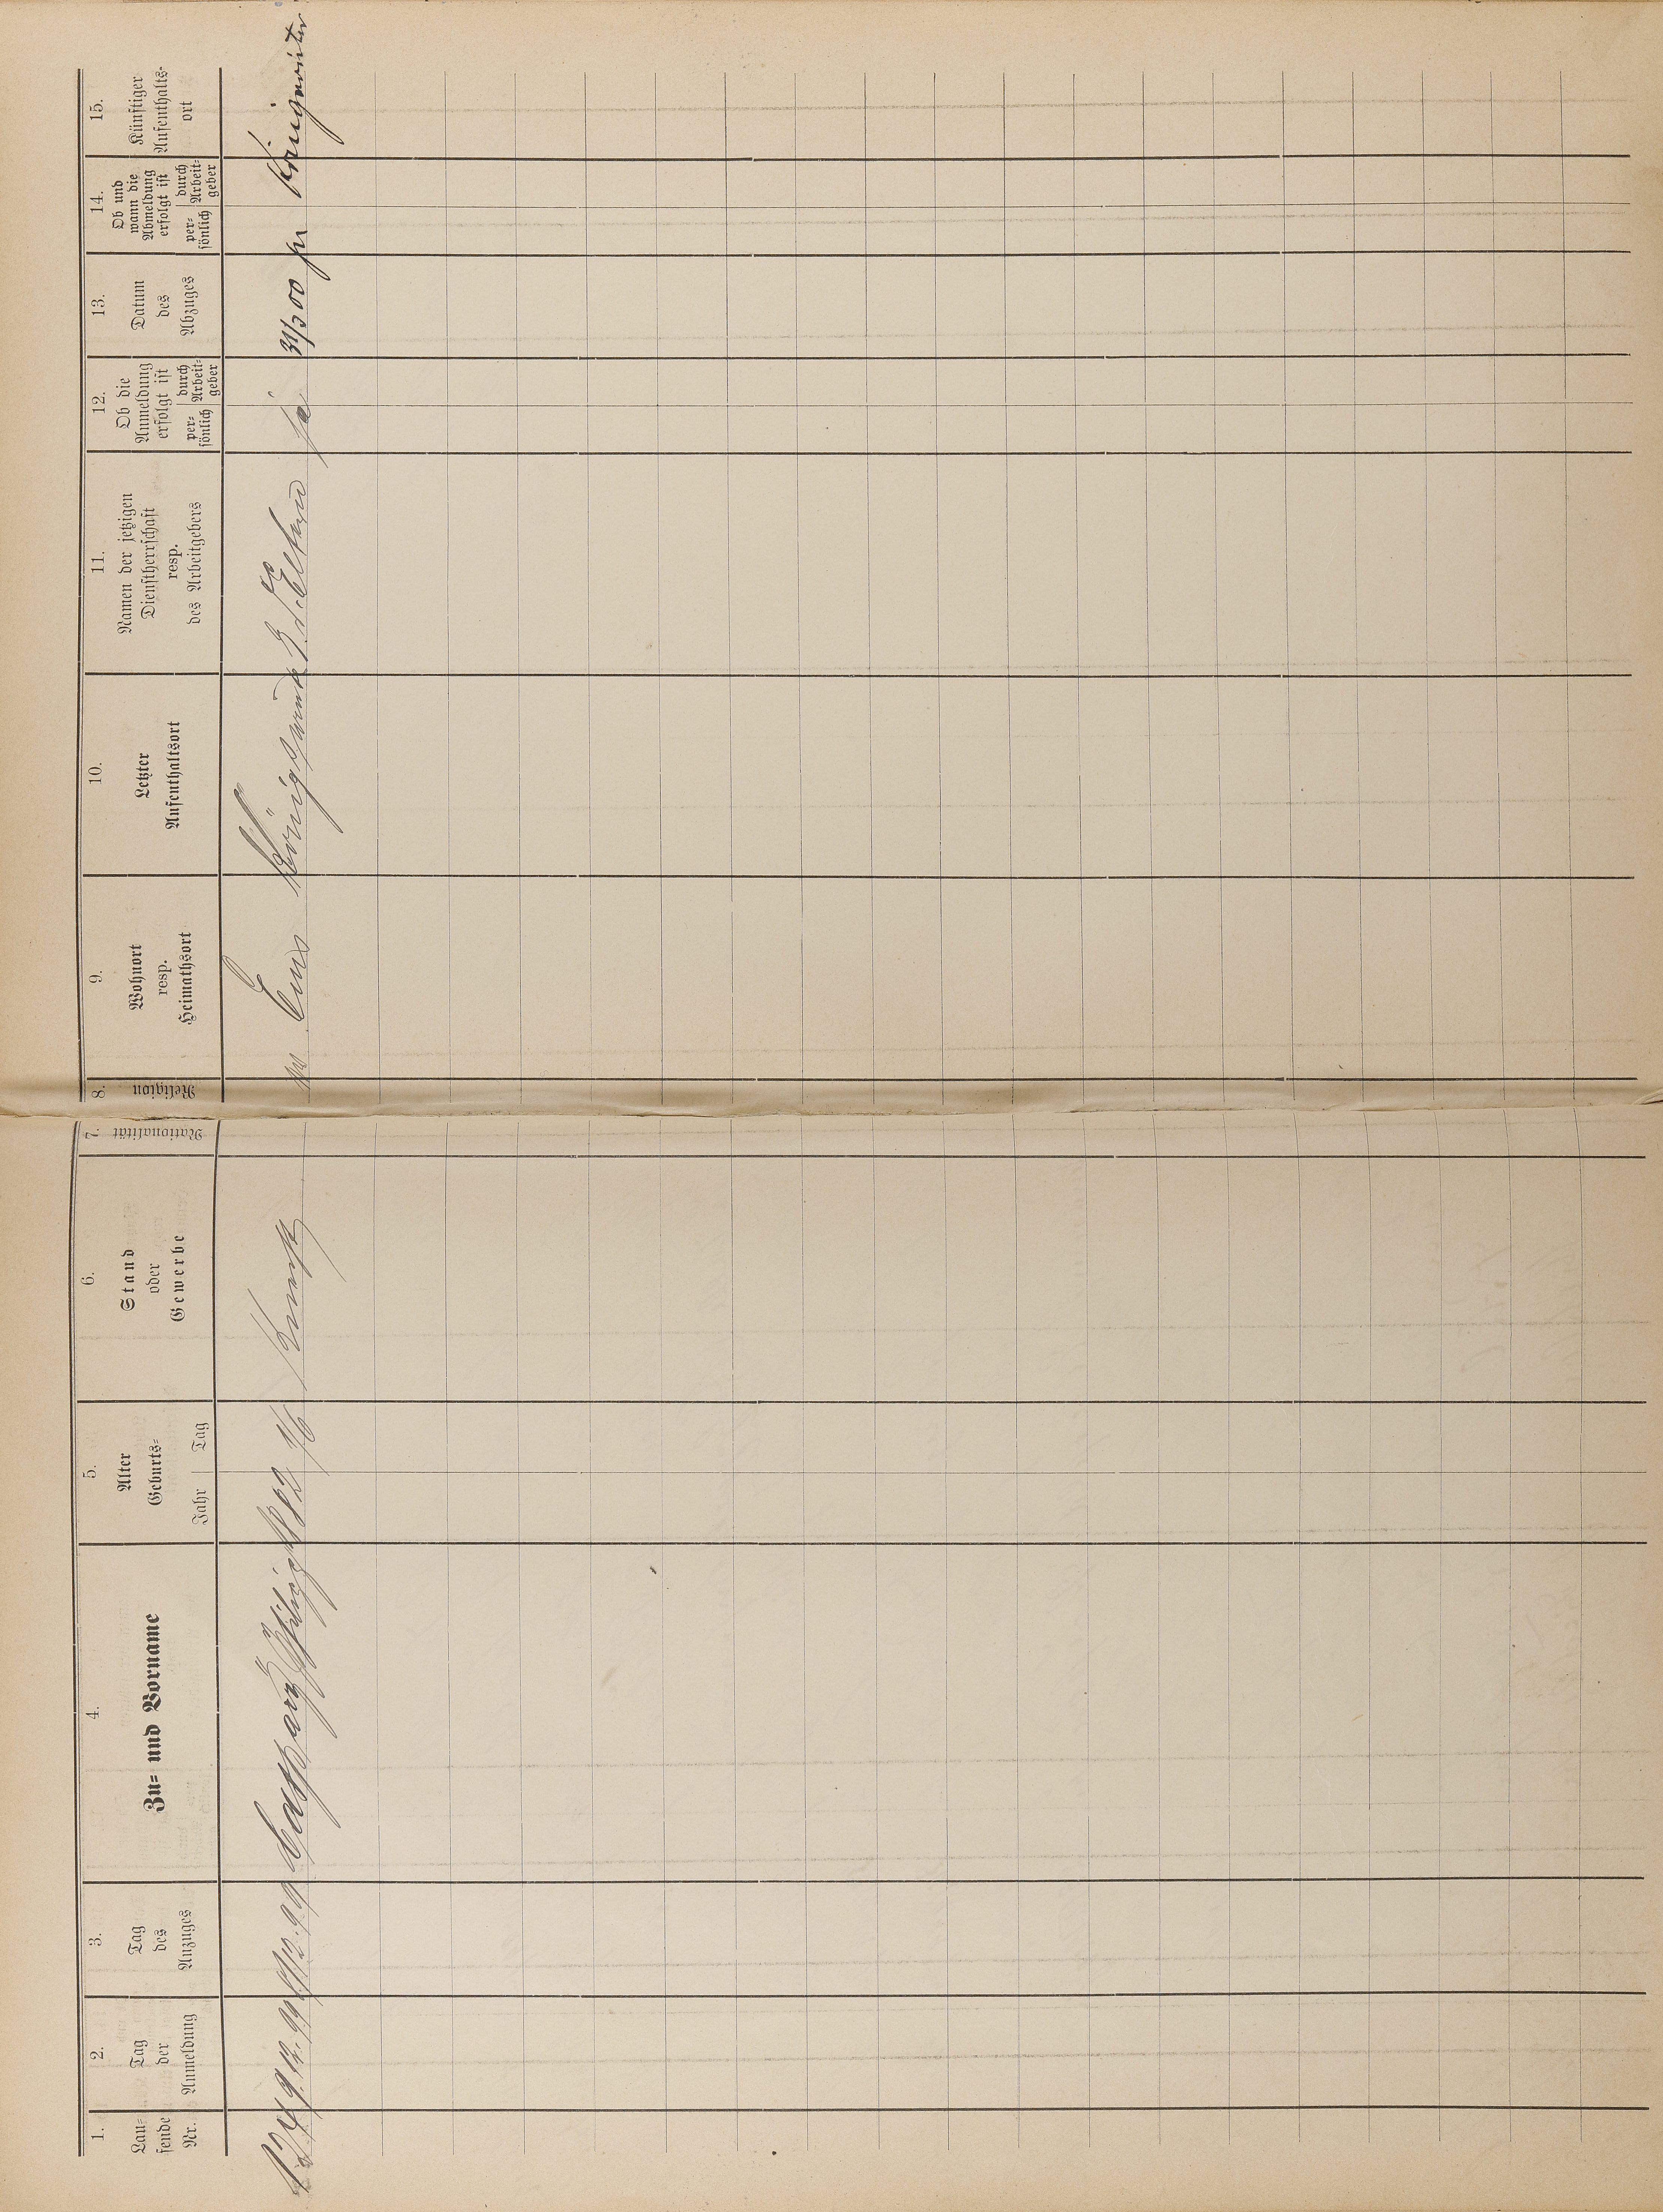 1.
Lau=
fende
Nr.
2.
Tag
der
Anmeldung
3.
Tag
des
Anzuges
4.
Zu= und Vorname
5.
Alter
Geburts=
Jahr
Tag
6.
Stand
oder
Gewerbe
7.
Nationalität
8.
Religion
9.
Wohnort
resp.
Heimathsort
10.
Letzter
Aufenthaltsort
11.
Namen der jetzigen
Dienstherrschaft
resp.
des Arbeitgebers
12.
Ob die
Anmeldung
erfolgt ist
per=
sönlich
durch
Arbeit=
geber
13.
Datum
des
Abzuges
14.
Ob und
wann die
Abmeldung
erfolgt ist
per=
sönlich
durch
Arbeit=
geber
15.
Künftiger
Aufenthalts=
ort
9.12.99 12.99 1882 Knecht Ems ja 31/3 00 Königswinter